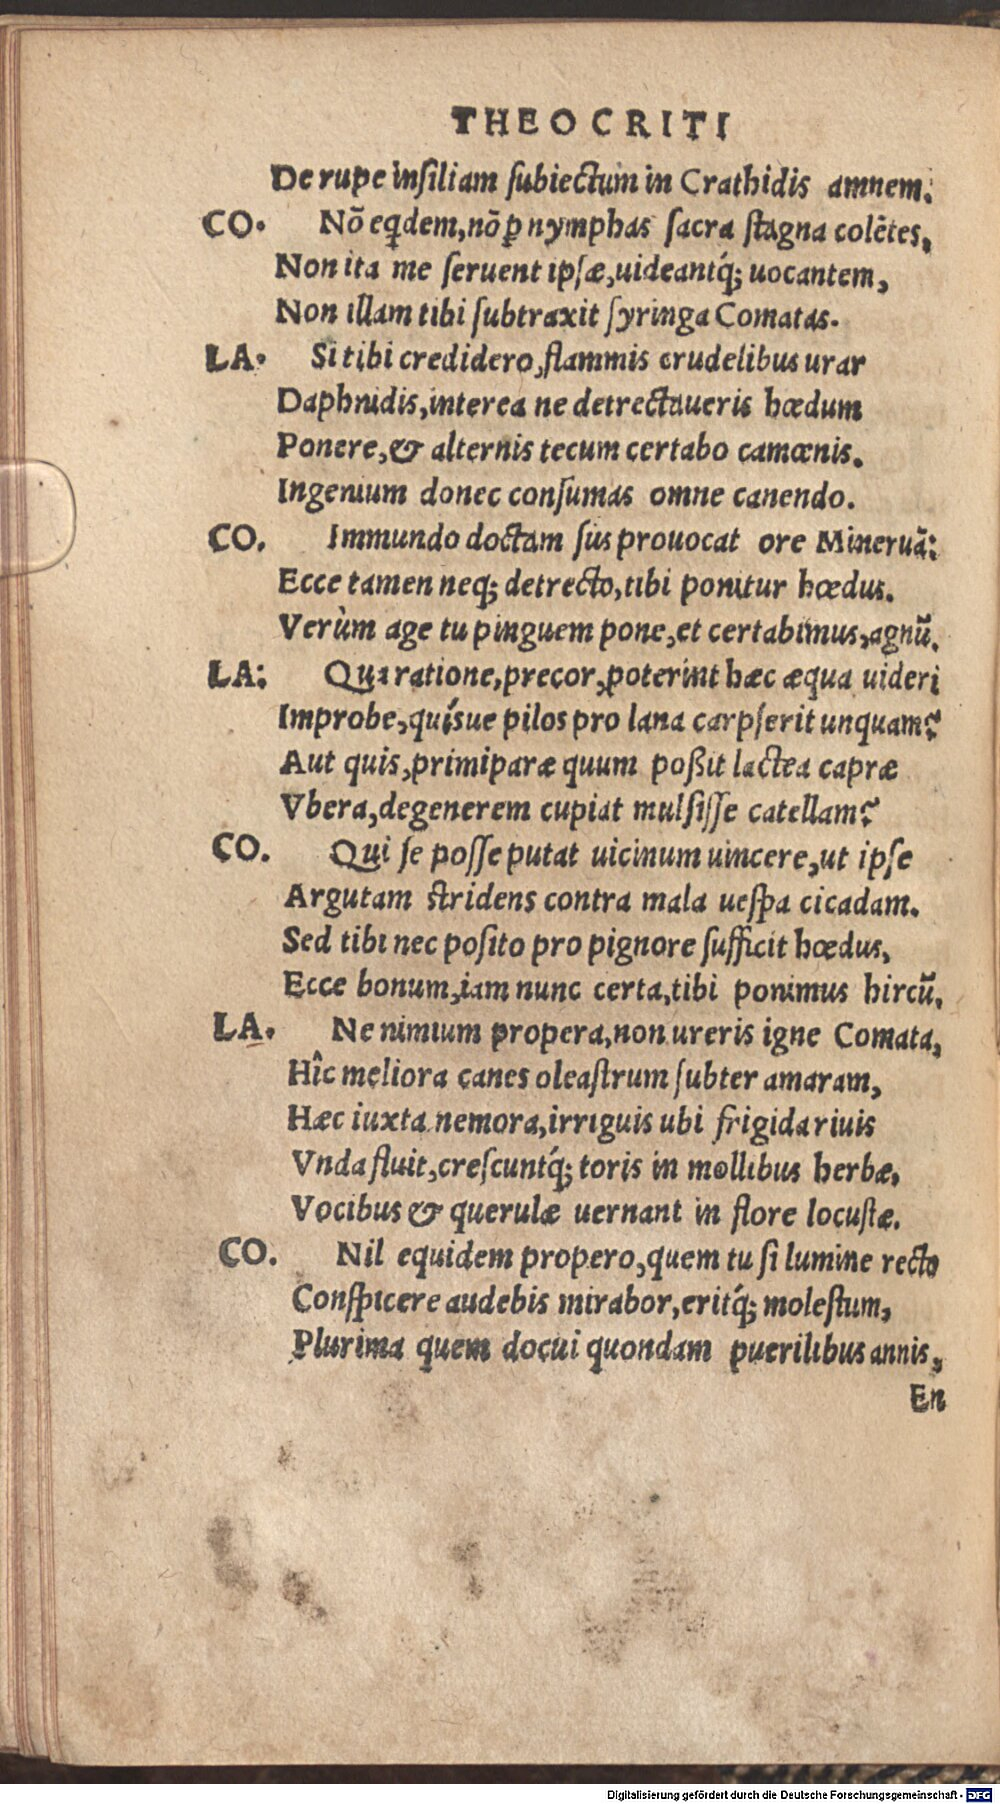 THEOCRITI
De rupe insiliam subiectum in Crathidis amnem.
CO. Nō eqdem, nō ꝑ nymphas sacra stagna colētes,
Non ita me seruent ipsæ, uideantq́; uocantem,
Non illam tibi subtraxit syringa Comatas.
LA. Si tibi credidero, flammis crudelibus urar
Daphnidis, interea ne detrectaueris hœdum
Ponere, & alternis tecum certabo camœnis.
Ingenium donec consumas omne canendo.
CO. Immundo doctam sus prouocat ore Mineruā:
Ecce tamen neq; detrecto, tibi ponitur hœdus.
Verùm age tu pinguem pone, et certabimus, agnū.
LA: Qua ratione, precor, poterint hæc æqua uideri
Improbe, quísue pilos pro lana carpserit unquam?
Aut quis, primiparæ quum poßit lactea capræ
Vbera, degenerem cupiat mulsisse catellam?
CO. Qui se posse putat uicinum uincere, ut ipse
Argutam stridens contra mala uespa cicadam.
Sed tibi nec posito pro pignore sufficit hœdus,
Ecce bonum, iam nunc certa, tibi ponimus hircū.
LA. Ne nimium propera, non ureris igne Comata,
Hîc meliora canes oleastrum subter amaram,
Hæc iuxta nemora, irriguis ubi frigida riuis
Vnda fluit, crescuntq́; toris in mollibus herbæ,
Vocibus & querulæ uernant in flore locustæ.
CO. Nil equidem propero, quem tu si lumine recto
Conspicere audebis mirabor, eritq́; molestum,
Plurima quem docui quondam puerilibus annis,
En
Digitalisierung gefördert durch die Deutsche Forschungsgemeinschaft - DFG